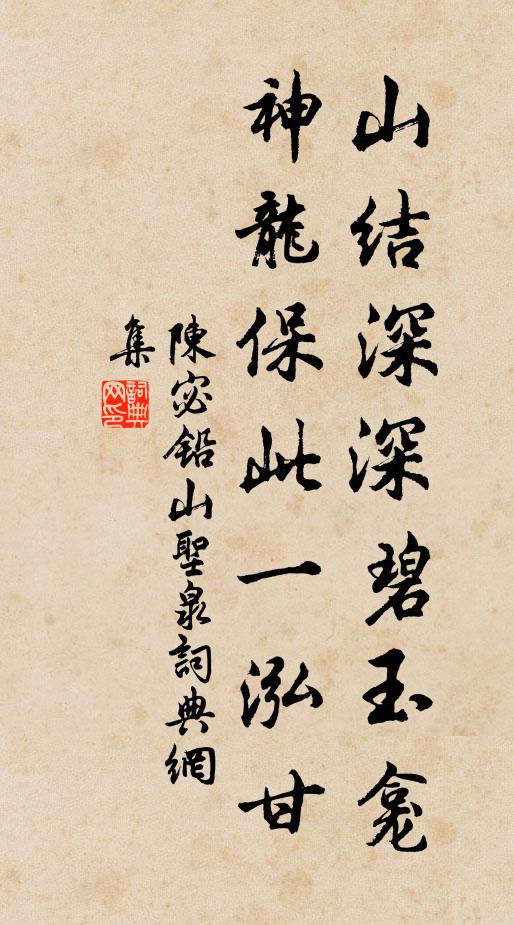 山结深深碧玉龛
神龍保此一泓甘
陳宓鉛山聖泉詞典網
集
詞典
网印